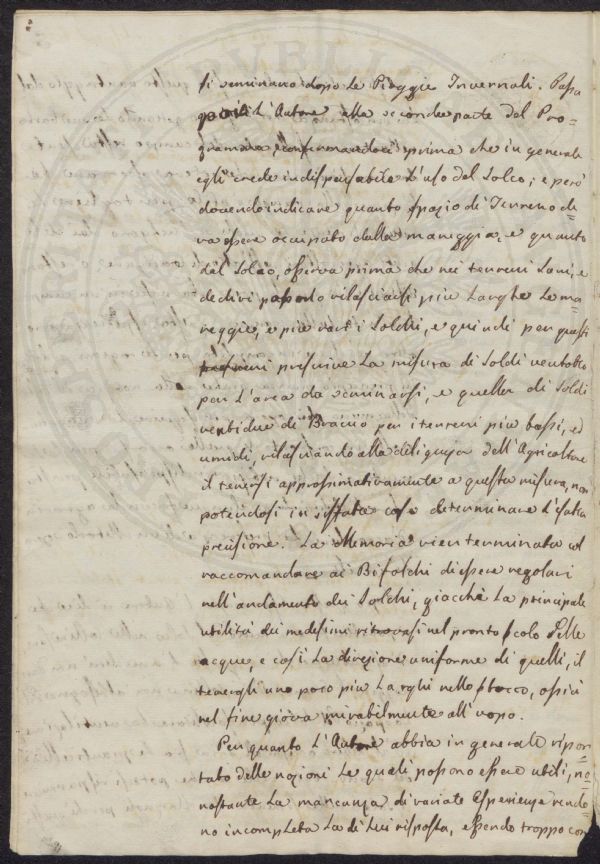 si seminano dopo le Pioggie Invernali. Passa
quindi l'Autore alla seconda parte del Pro=
gramma, confermandoci prima che in generale
egli crede indispensabile l'uso del Solco; e però
dovendo indicare quanto spazio di Terreno de=
va essere occupato dalla mareggia, e quanto
dal Solco, osserva prima che nei terreni sani, e
declivi possono rilasciarsi più larghe le ma=
reggie, e più rari i Solchi, e quindi per questi
terreni prescrive la misura di Soldi ventotto
per l'area da seminarsi, e quella di Soldi
ventidue di Braccio per i terreni più bassi, ed
umidi, rilasciando alla diligenza dell'Agricoltore
il tenersi approssimativamente a questa misura, non
potendosi in siffata cosa determinare l'esatta
precisione. La Memoria vien terminata col
raccomandare ai Bifolchi di essere regolari
nell'andamento dei Solchi, giacchè la principale
utilità dei medesimi ritrovasi nel pronto scolo delle
acque, e così la direzione uniforme di quelli, il
tenergli uno poco più larghi nello sbocco, ossia
nel fine giova mirabilmente all'uopo.
Per quanto l'Autore abbia in generale ripor=
tato delle nozioni le quali possono essere utili, no=
nostante la mancanza di variate esperienze rendo=
no incompleta la di lui risposta, essendo troppo con